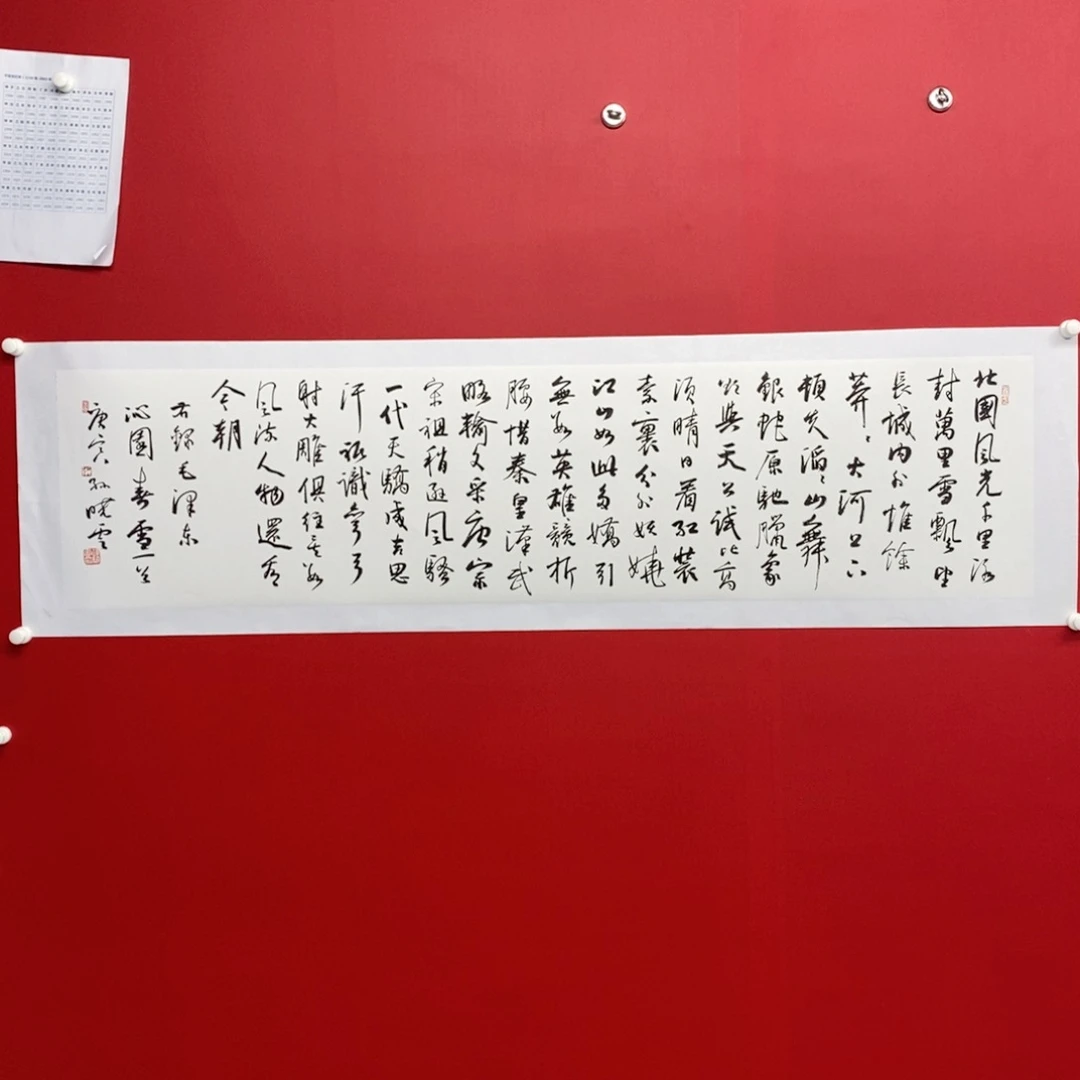 北國風光千里冰
封萬里雪飄望
長城内外惟餘
莽〻大河上下
頓失滔〻山舞
銀蛇原馳臘象
欲與天公試比高
須晴日看紅裝
素裹分外妖嬈
江山如此多嬌引
無數英雄競折
腰惜秦皇漢武
略輸文采唐宗
宋祖稍遜風騷
一代天驕成吉思
汗祇識彎弓
射大雕俱往矣數
風流人物還看
今朝
右錄毛澤東
沁園春雪一首
庚寅孫曉雲